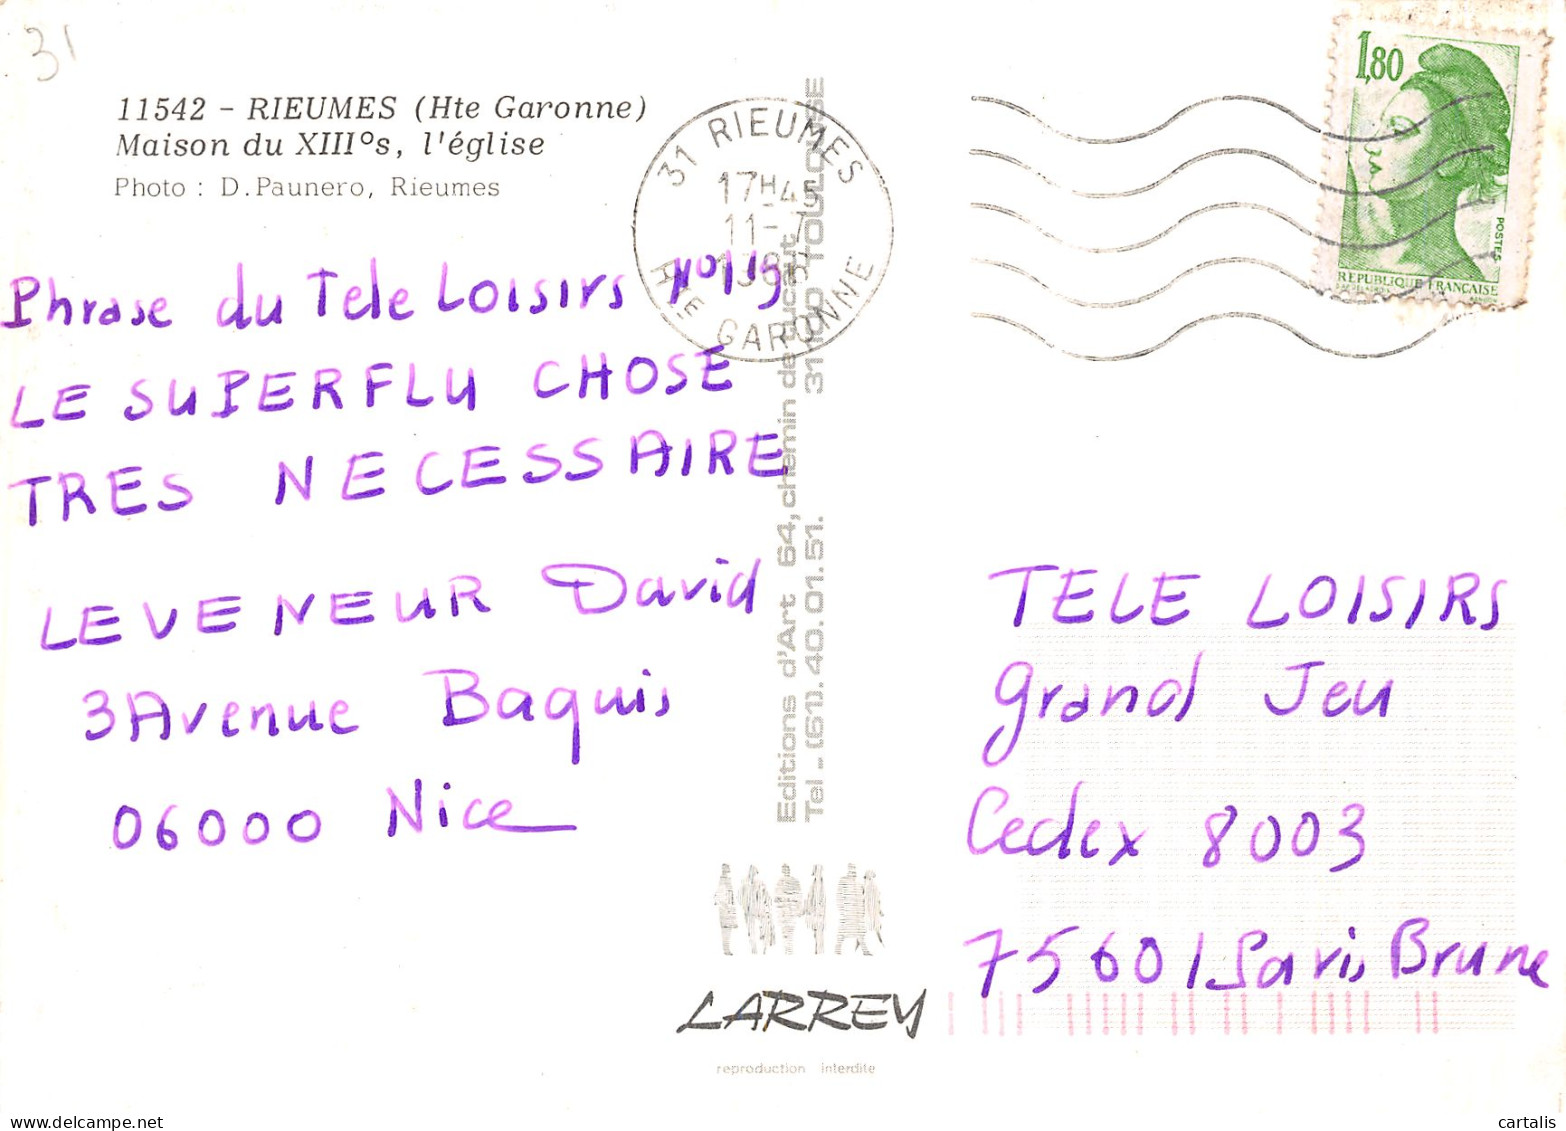 31
11542 - RIEUMES (Hte Garonne)
Maison du XIII°s, l'église
Photo : D.Paunero, Rieumes
31 RIEUMES
17H45
11-7
HTE GARONNE
1,80
POSTES
REPUBLIQUE FRANCAISE
Phrase du Tele Loisirs N°119
LE SUPERFLU CHOSE
TRES NECESSAIRE
LEVENEUR David
3 Avenue Baquis
06000 Nice
Editions d'Art 64, chemin de 31100 TOULOUSE
Tel - (61). 40.01.51.
TELE LOISIRS
grand Jeu
Cedex 8003
75601 Paris Brune
LARREY
reproduction interdite
cartalis